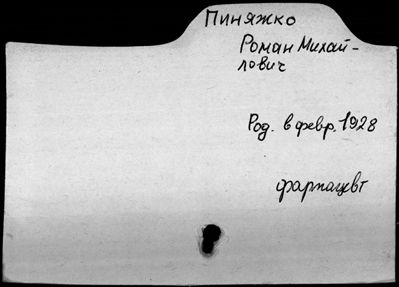 Пиняжко
Роман Михай-
лович
Род. в февр. 1928
фармацевт